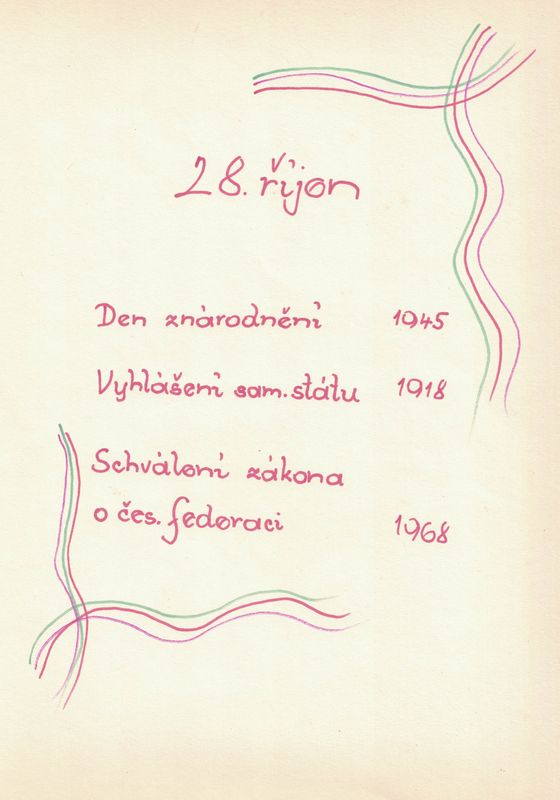 28. říjen
Den znárodnění 1945
Vyhlášení sam. státu 1918
Schválení zákona
o čes. federaci 1968